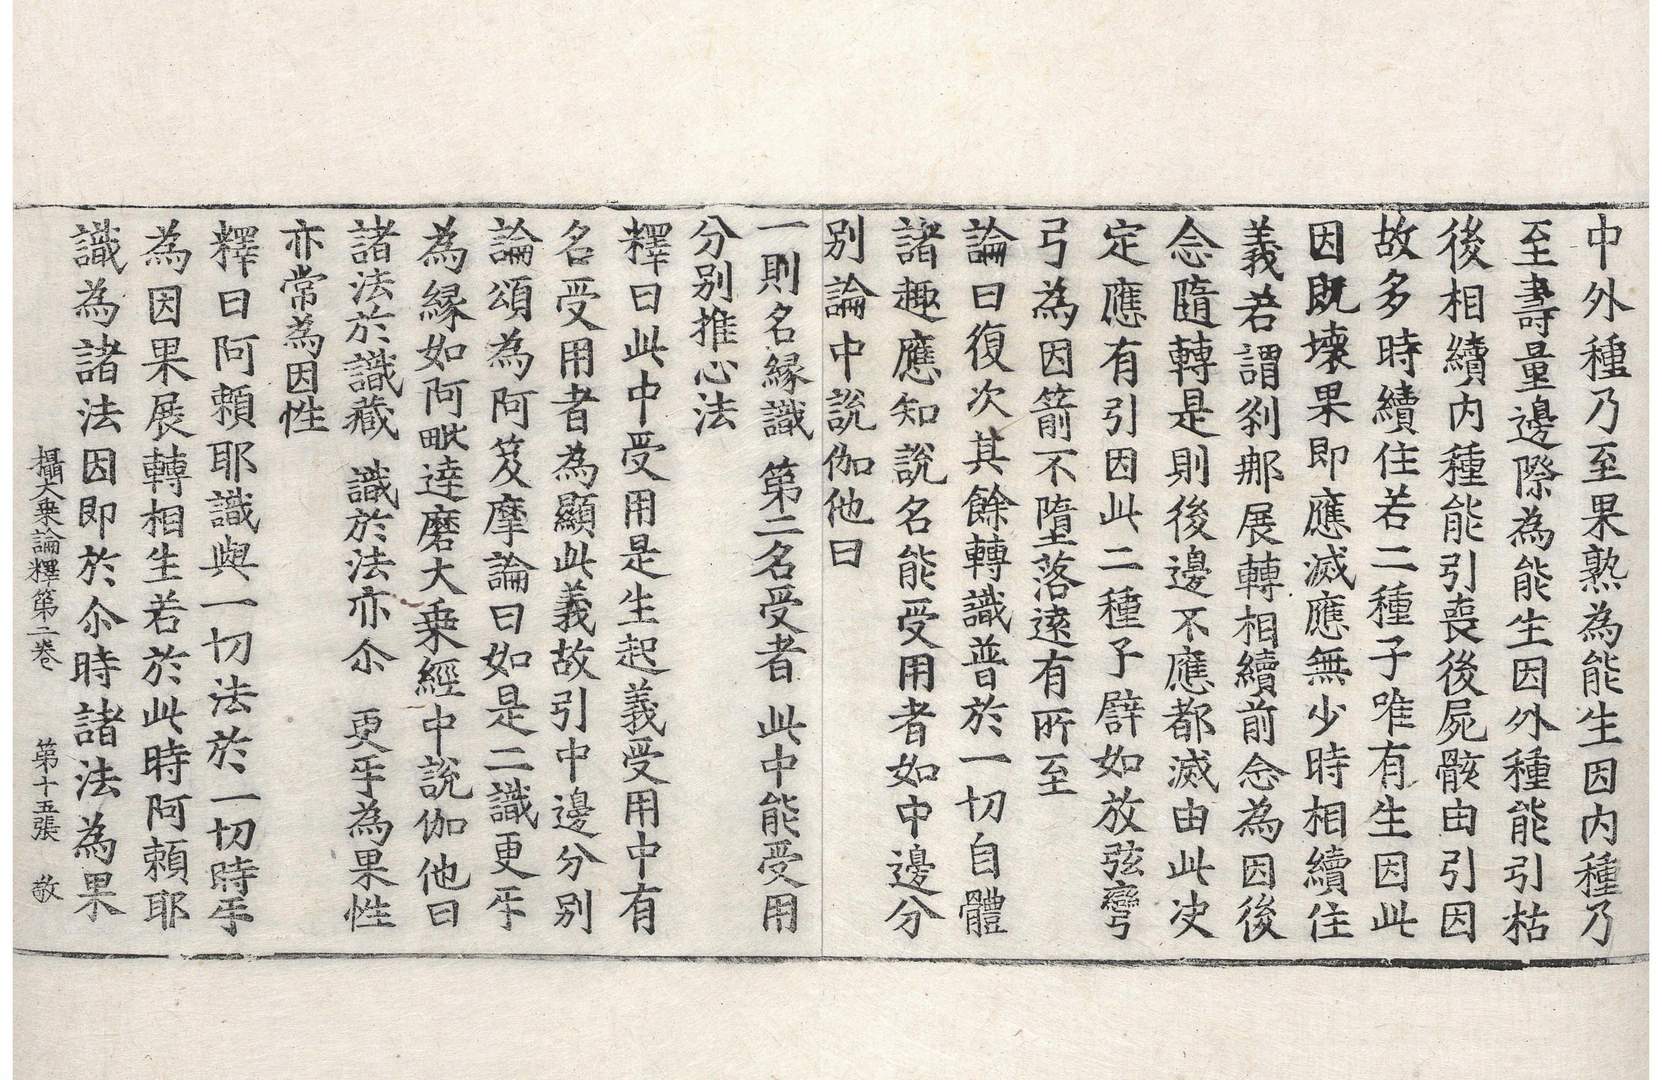 中外種乃至果熟為能生因内種乃
至壽量邊際為能生因外種能引枯
後相續内種能引喪後屍骸由引因
故多時續住若二種子唯有生因此
因既壞果即應滅應無少時相續住
義若謂剎那展轉相續前念為因後
念隨轉是則後邊不應都滅由此决
定應有引因此二種子譬如放弦彎
弓為因箭不墮落遠有所至
論曰復次其餘轉識普於一切自體
諸趣應知說名能受用者如中邊分
別論中說伽他曰
一則名緣識 第二名受者 此中能受用
分別推心法
釋曰此中受用是生起義受用中有
名受用者為顯此義故引中邊分別
論頌為阿笈摩論曰如是二識更㸦
為緣如阿毗達磨大乗經中說伽他曰
諸法於識藏 識於法亦尒 更㸦為果性
亦常為因性
釋曰阿賴耶識與一切法於一切時㸦
為因果展轉相生若於此時阿賴耶
識為諸法因即於尒時諸法為果
攝大乗論釋第二卷 第十五張 敬